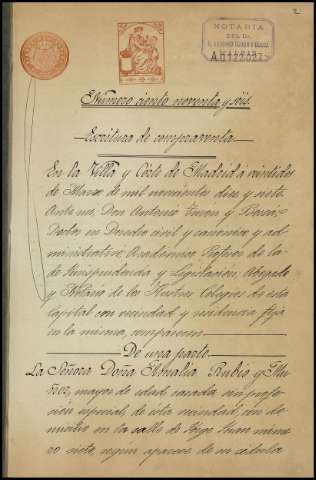 2
NOTARIA
DEL Dr.
A.0122027
Número ciento noventa y seis.
Escritura de compraventa
En la Villa y Corte de Madrid á veintidos
de Marzo de mil novecientos diez y siete.
Ante mi, Don Antonio Turon y Boscá
Doctor en Derecho civil y canónico y ad-
ministrativo, Academico Profesor de la
de Jurisprudencia y Legislación, Abogado
y Notario de los Ilustres Colegios de esta
capital con vecindad y residencia fija
en la misma, comparecen
De una parte
La Señora Doña Amalia Rubio y Mu-
ñoz, mayor de edad casada, sin profe-
sion especial, de esta vecindad, con do-
micilio en la calle de Jorge Juan núme-
ro siete, según aparece de su cédula